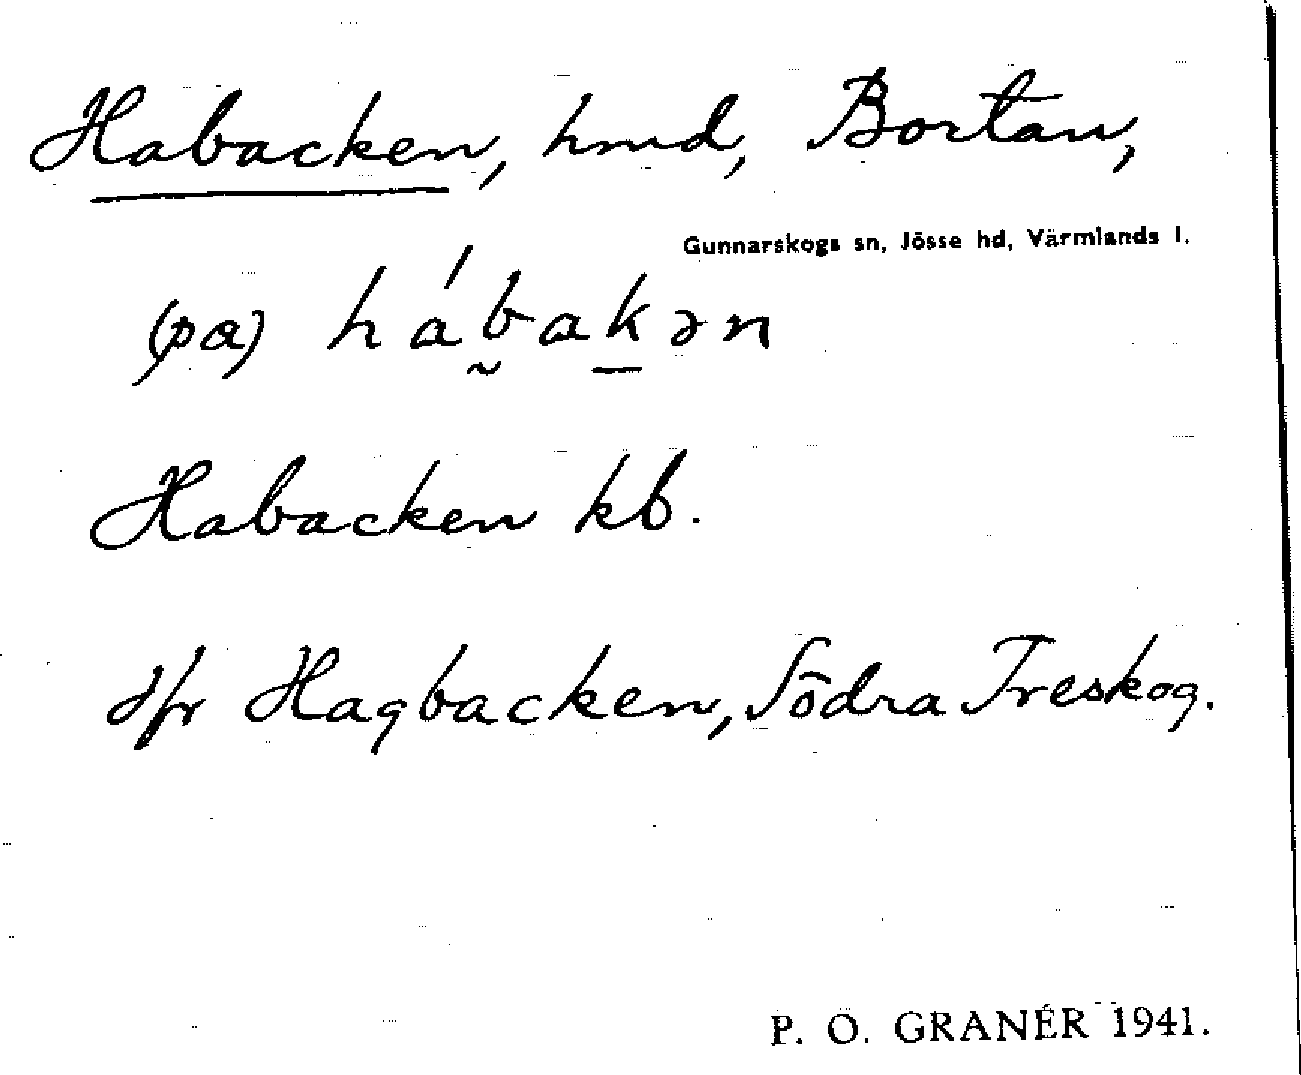 Habacken, hmd, Bortan,
Gunnarskogs sn, Jösse hd, Värmlands l.
(pa) hábakən
Habacken kb.
jfr Hagbacken, Södra Treskog.
P. O. GRANÉR 1941.